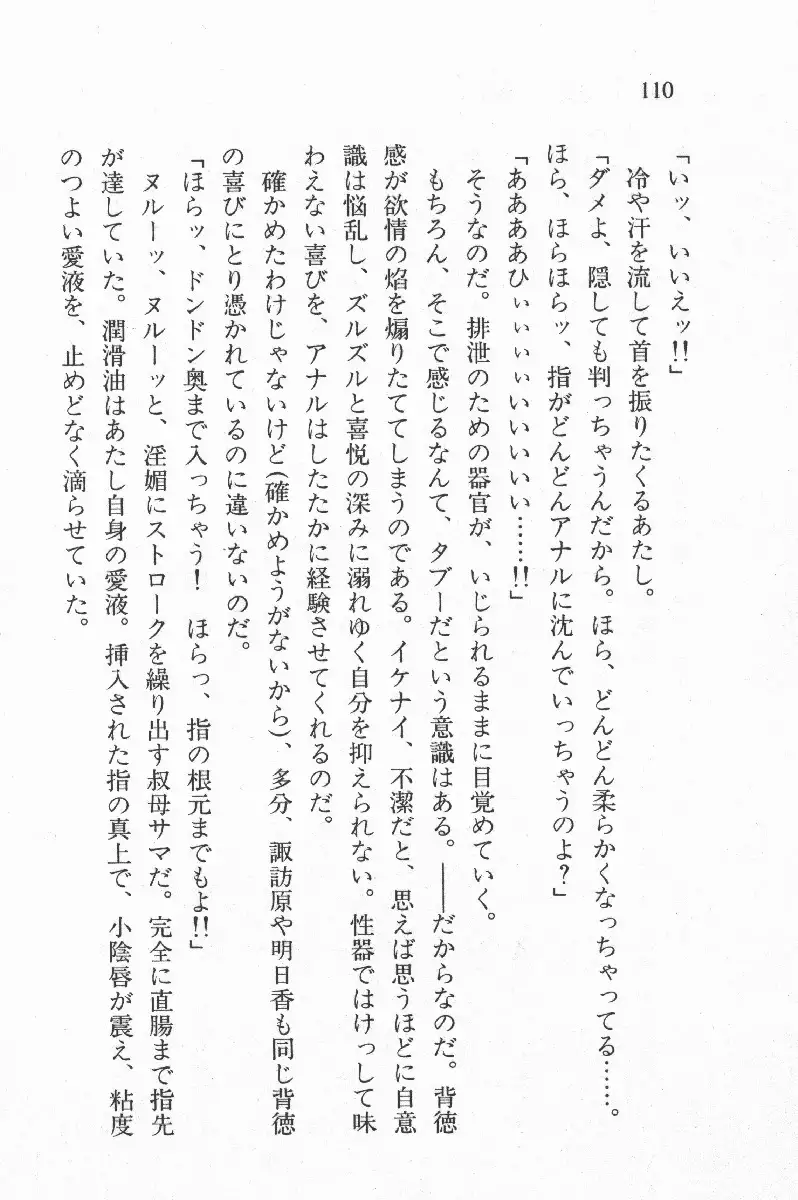 110
「いッ、いいえッ!!」
冷や汗を流して首を振りたくるあたし。
「ダメよ、隠しても判っちゃうんだから。ほら、どんどん柔らかくなっちゃってる……。
ほら、ほらほらッ、指がどんどんアナルに沈んでいっちゃうのよ?」
「ああああひぃぃぃぃいいいいい……!!」
そうなのだ。排泄のための器官が、いじられるままに目覚めていく。
もちろん、そこで感じるなんて、タブーだという意識はある。――だからなのだ。背徳
感が欲情の焔を煽りたててしまうのである。イケナイ、不潔だと、思えば思うほどに自意
識は悩乱し、ズルズルと喜悦の深みに溺れゆく自分を抑えられない。性器ではけっして味
わえない喜びを、アナルはしたたかに経験させてくれるのだ。
確かめたわけじゃないけど(確かめようがないから)、多分、諏訪原や明日香も同じ背徳
の喜びにとり憑かれているのに違いないのだ。
「ほらッ、ドンドン奥まで入っちゃう! ほらっ、指の根元までもよ!!」
ヌルーッ、ヌルーッと、淫媚にストロークを繰り出す叔母サマだ。完全に直腸まで指先
が達していた。潤滑油はあたし自身の愛液。挿入された指の真上で、小陰唇が震え、粘度
のつよい愛液を、止めどなく滴らせていた。